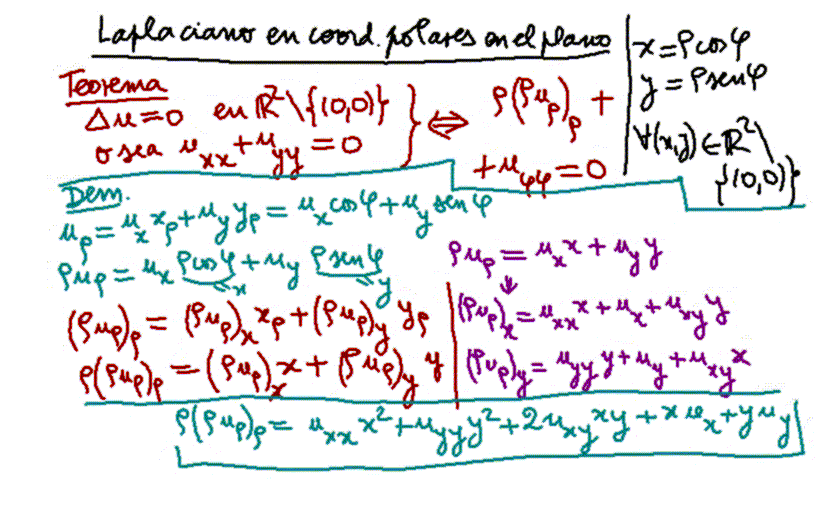 Laplaciano en coord. polares en el plano
x = ρcosφ
y = ρsenφ
∀(x,y) ∈ ℝ²\
{(0,0)}
Teorema
Δu = 0 en ℝ²\{(0,0)}
o sea u_xx + u_yy = 0
⇔ ρ(ρu_ρ)_ρ +
+ u_φφ = 0
Dem.
u_ρ = u_x x_ρ + u_y y_ρ = u_x cosφ + u_y senφ
ρu_ρ = u_x ρcosφ + u_y ρsenφ
=x =y
(ρu_ρ)_ρ = (ρu_ρ)_x x_ρ + (ρu_ρ)_y y_ρ
ρ(ρu_ρ)_ρ = (ρu_ρ)_x x + (ρu_ρ)_y y
ρu_ρ = u_x x + u_y y
↓
(ρu_ρ)_x = u_xx x + u_x + u_xy y
(ρu_ρ)_y = u_yy y + u_y + u_xy x
ρ(ρu_ρ)_ρ = u_xx x² + u_yy y² + 2u_xy xy + x u_x + y u_y